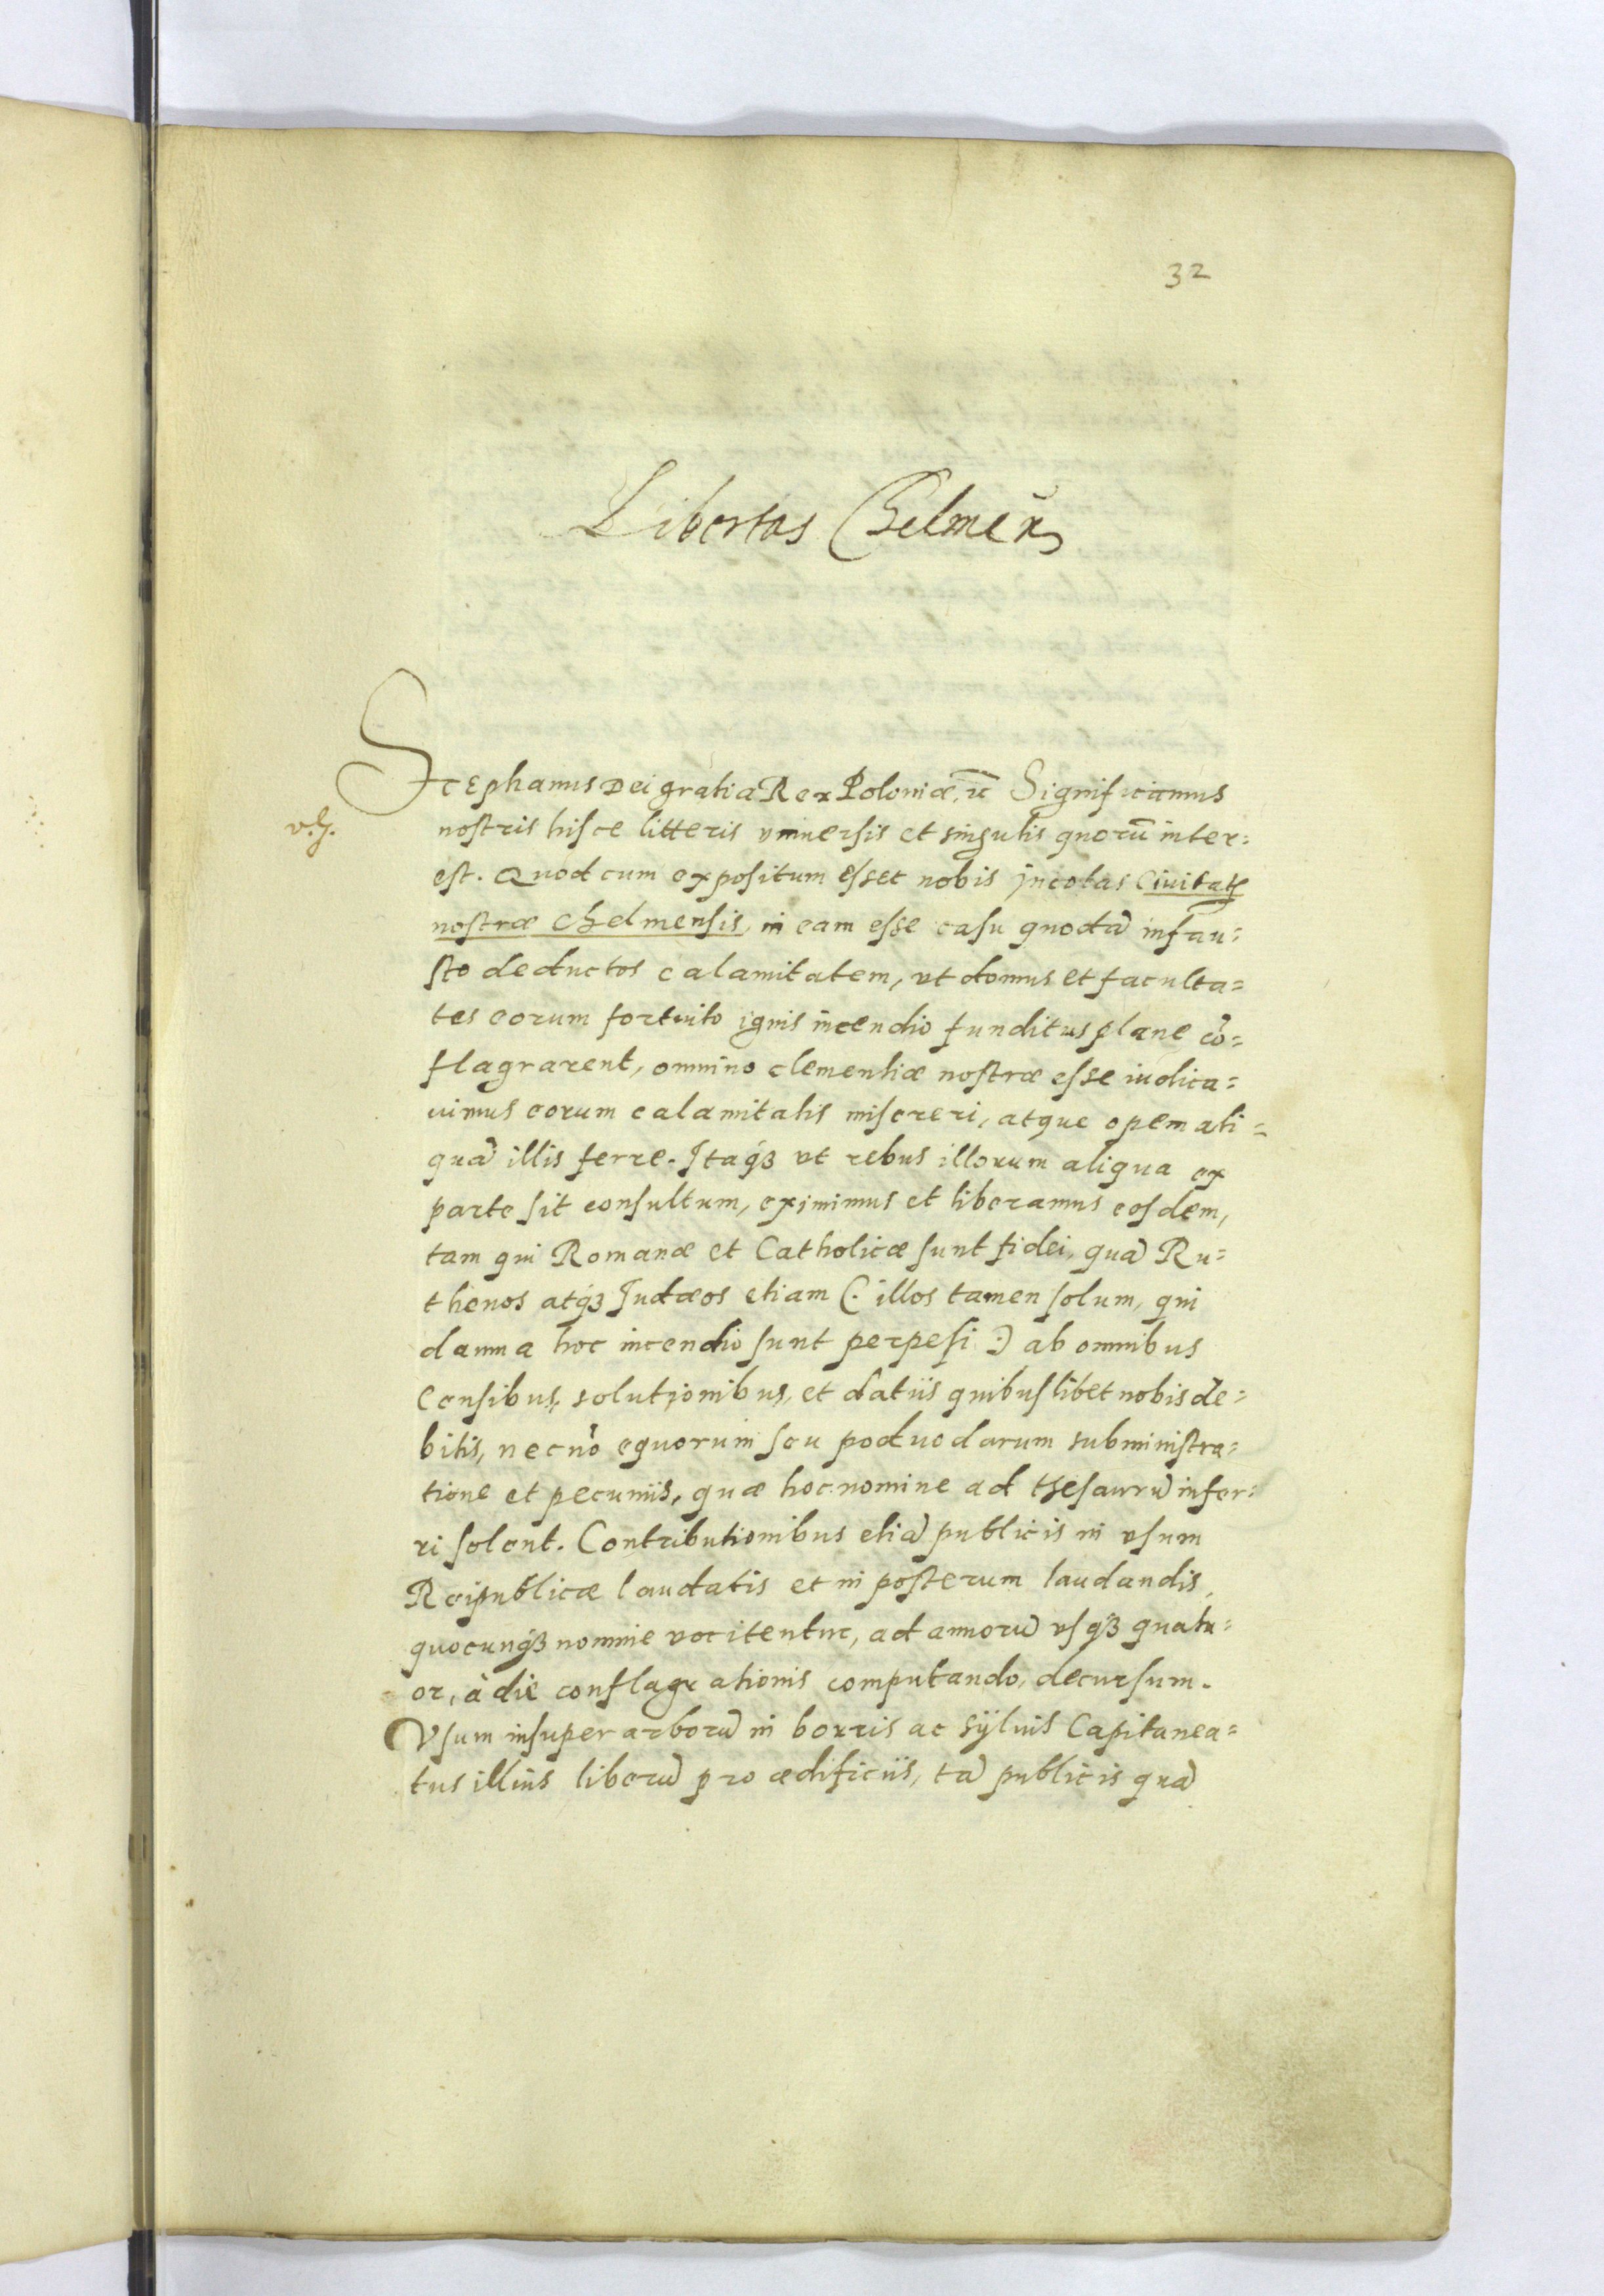 32
Libertas Chelmeñ
Stephanus Dei gratia Rex Poloniæ, ec̄ Significamus
nostris hisce litteris vniuersis et singulis quorū inter=
est. Quod cum expositum esset nobis incolas Ciuitatꝭ
nostræ Chelmensis, in eam esse casu quodā infau=
sto deductos calamitatem, vt domus et faculta=
tes eorum fortuito ignis incendio funditus plane cō=
flagrarent, omnino clementiæ nostræ esse iudica=
uimus eorum calamitatis misereri, atque opem ali=
quā illis ferre. Itaqꝫ vt rebus illorum aliqua ex
parte sit consultum, eximimus et liberamus eosdem,
tam qui Romanæ et Catholicæ sunt fidei, quā Ru=
thenos atqꝫ Judæos etiam (: illos tamen solum, qui
damna hoc incendio sunt perpesi :) ab omnibus
Censibus, solutionibus, et datiis quibuslibet nobis de=
bitis, necnō equorum seu poduodarum subministra=
tione et pecuniis, quæ hoc nomine ad thesaurū infer=
ri solent. Contributionibus etiā publicis in vsum
Reipublicæ laudatis et in posterum laudandis,
quocunqꝫ nomine vocitentur, ad annorū vsqꝫ quatu=
or, à die conflagrationis computando, decursum.
Vsum insuper arborū in borris ac syluis Capitanea=
tus illius liberū pro ædificiis, tā publicis quā